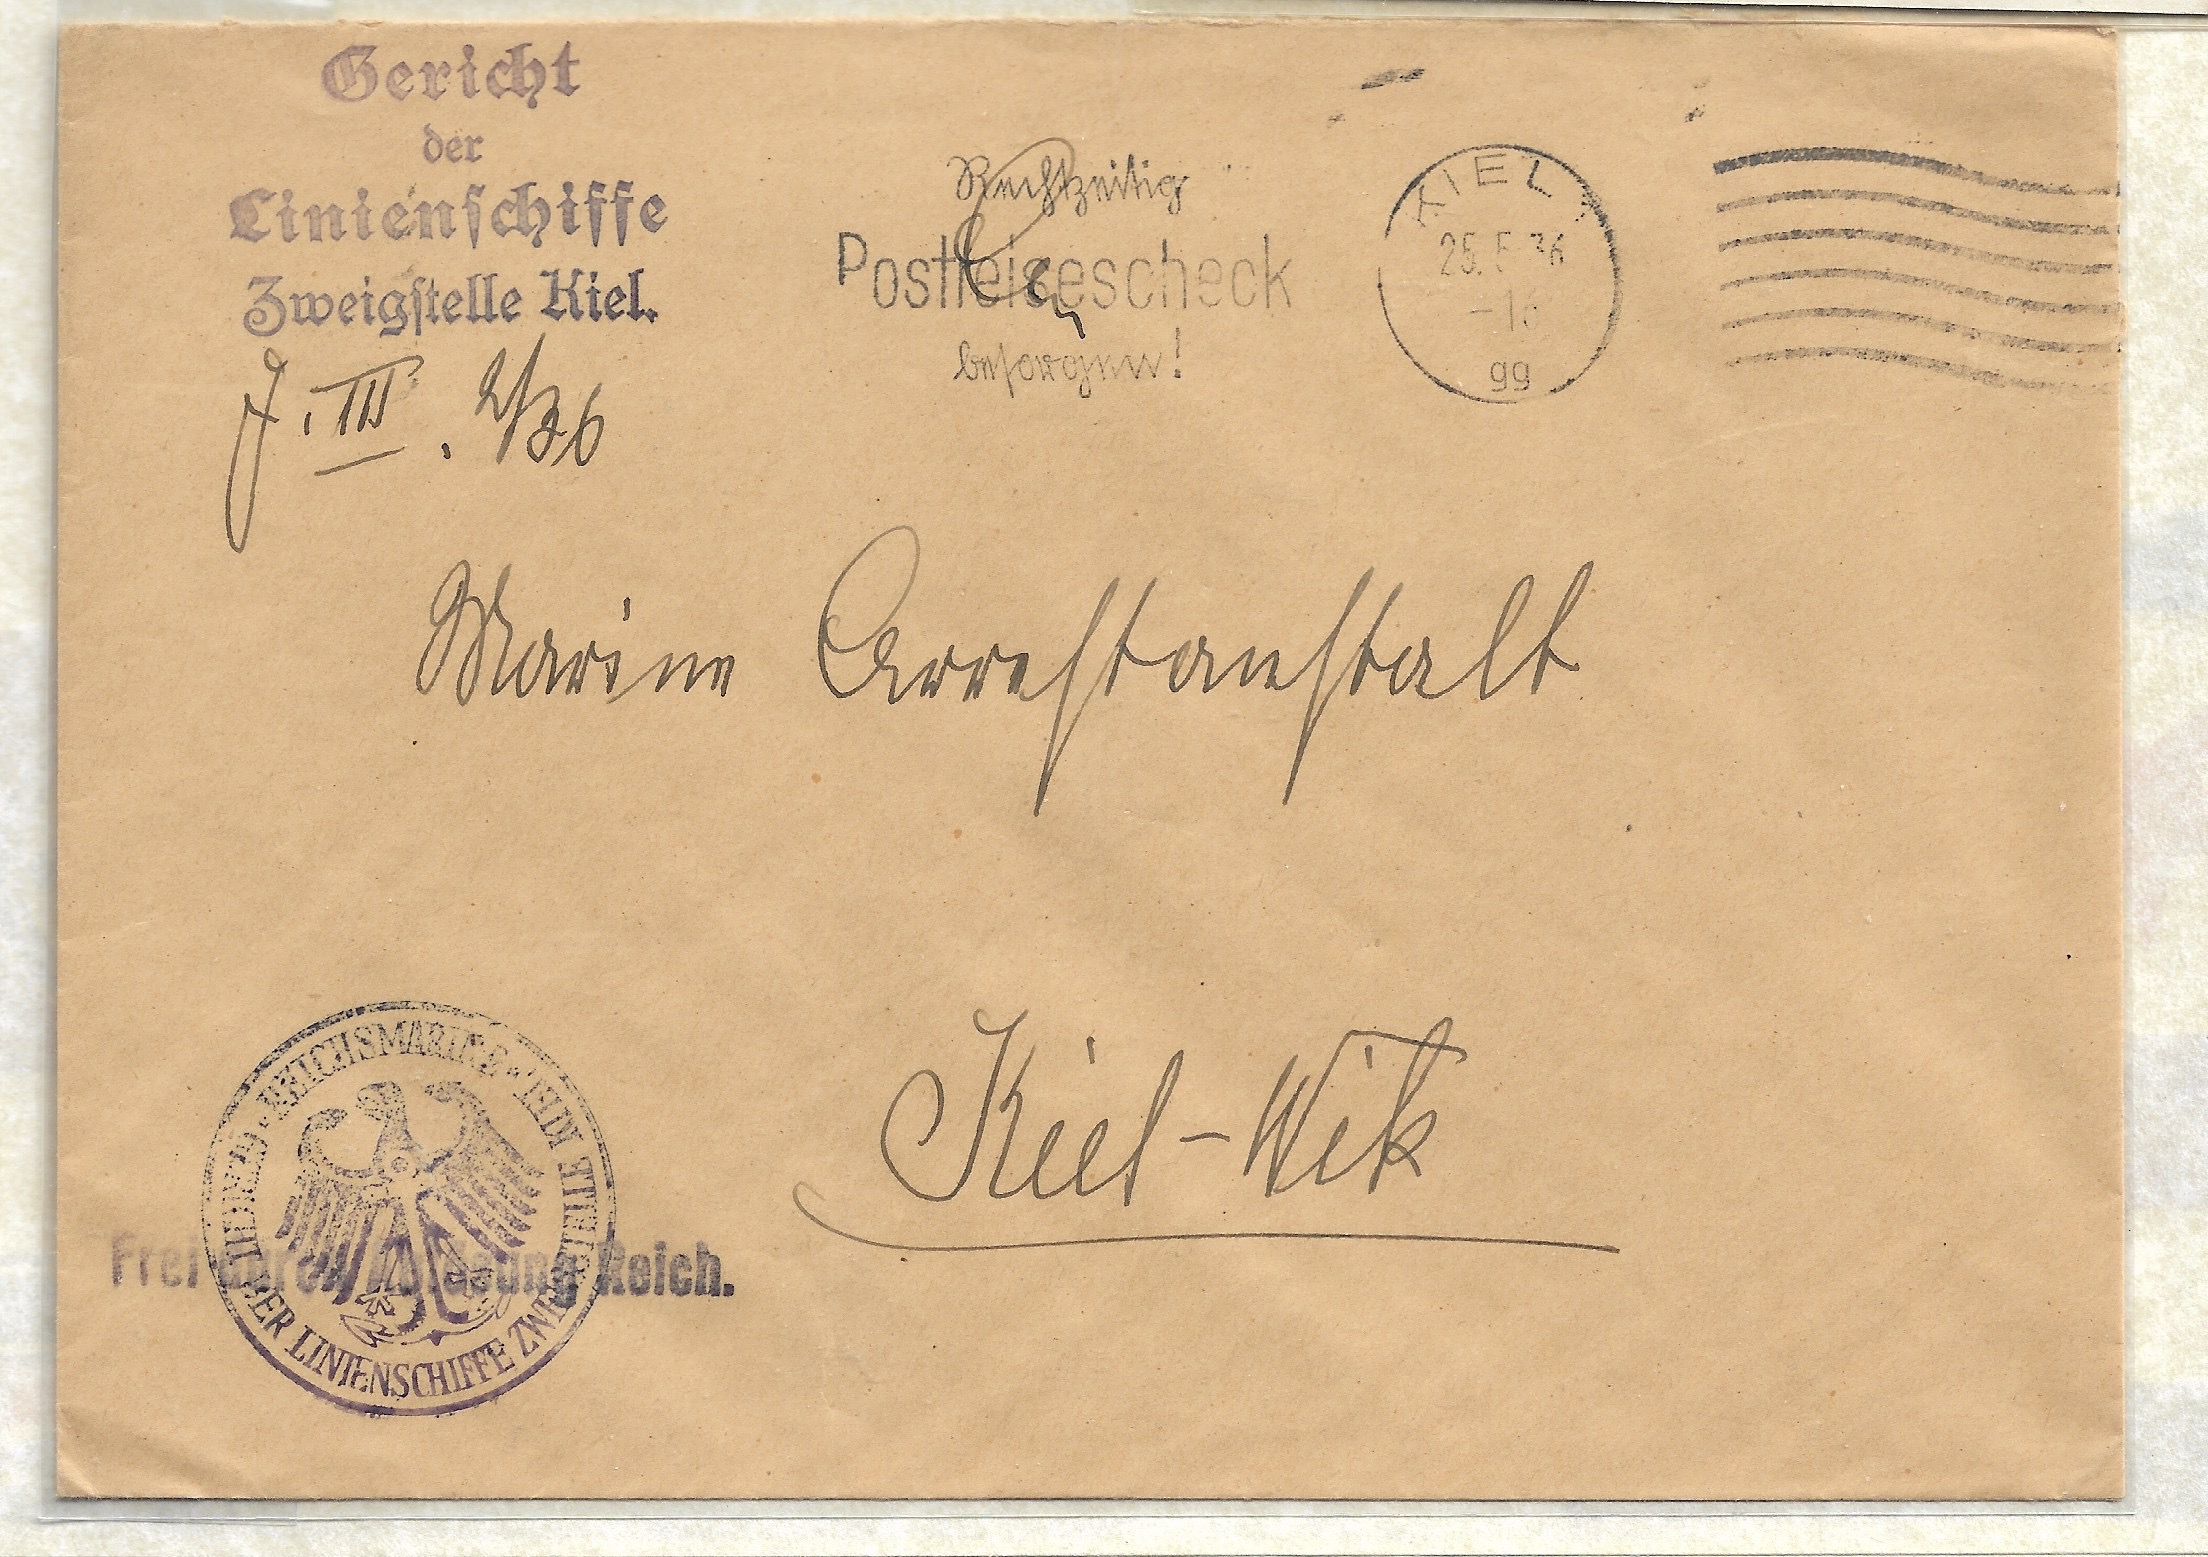 Gericht
der
Linienschiffe
Zweigstelle Kiel.
J. III. 2/36
Rechtzeitig
Postreisescheck
besorgen!
KIEL
25. 5 36
gg
Marine Arrestanstalt
Kiel-Wik
REICHSMARINE
GERICHT DER LINIENSCHIFFE ZWEIGSTELLE KIEL
Frei durch Ablösung Reich.